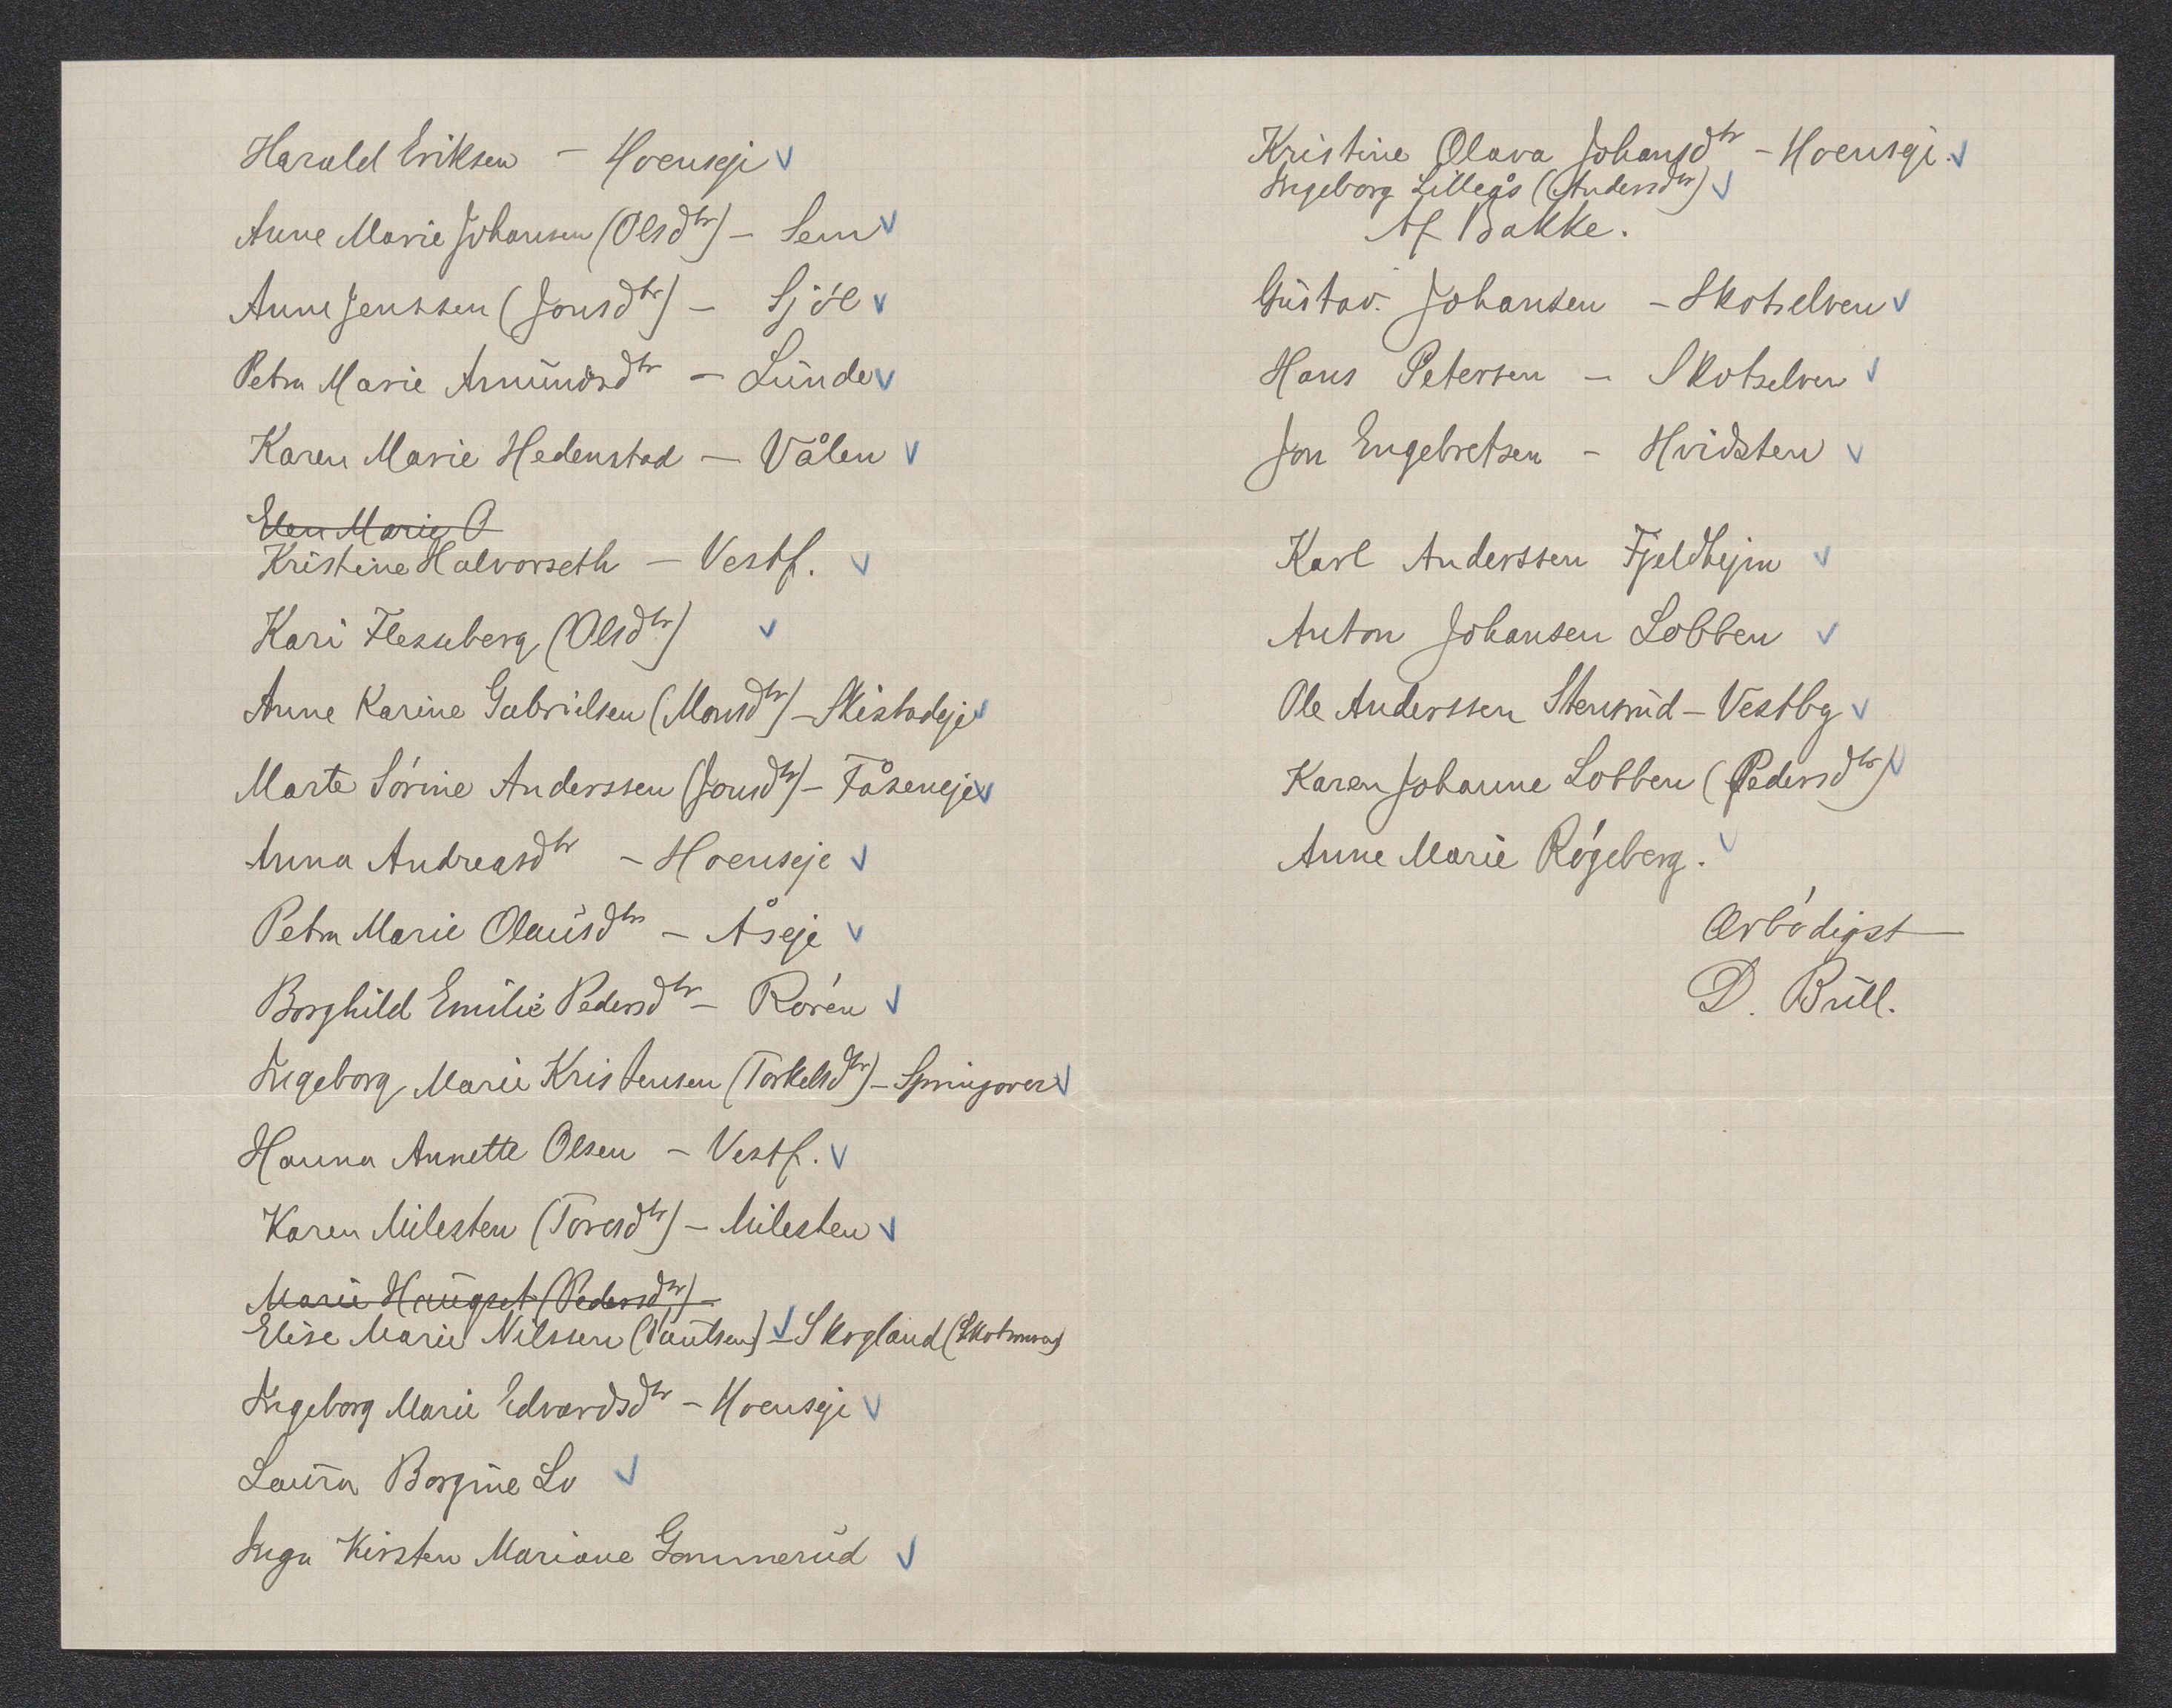 Harald Eriksen – Hoenseje
Anne Marie Johansen (Olsdtr) – Sem
Anne Jenssen (Jonsdtr) – Sjöl
Petra Marie Amundsdtr – Lunde
Karen Marie Hedenstad – Vålen
Elen Marie O
Kristine Halvorseth – Vestf.
Kari Flesseberg (Olsdtr)
Anne Karine Gabrielsen (Monsdtr) – Skistadeje
Marte Sórine Anderssen (Jonsdtr) – Fåseneje
Anna Andreasdtr – Hoenseje
Petra Marie Olausdtr – Åseje
Borghild Emilie Pedersdtr – Rórén
Ingeborg Marie Kristensen (Torkelsdtr) – Springover
Hanna Annette Olsen – Vestf.
Karen Milesten (Toresdtr) – Milesten
Marie Haugset (Pedersdtr) –
Elise Marie Nilssen – Skogland
Ingeborg Marie Edvardsdtr – Hoenseje
Laura Borgine Lo
Inga Kirsten Mariane Gommerud
Kristine Olava Johansdtr – Hoenseje.
Ingeborg Lilleås (Andersdtr)
Af Bakke.
Gustav Johansen – Skotselven
Hans Petersen – Skotselven
Jon Engebretsen – Hvidsten
Karl Anderssen Fjeldhejm
Anton Johansen Lobben
Ole Anderssen Stensrud – Vestbg
Karen Johanne Lobben (Pedersdtr)
Anne Marie Rógeberg.
Ærbódigst
D. Bull.